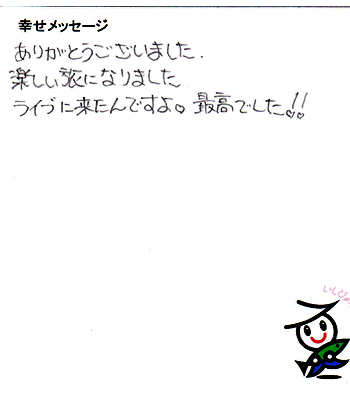 幸せメッセージ
ありがとうございました.
楽しい旅になりました
ライブに来たんですよ。最高でした!!